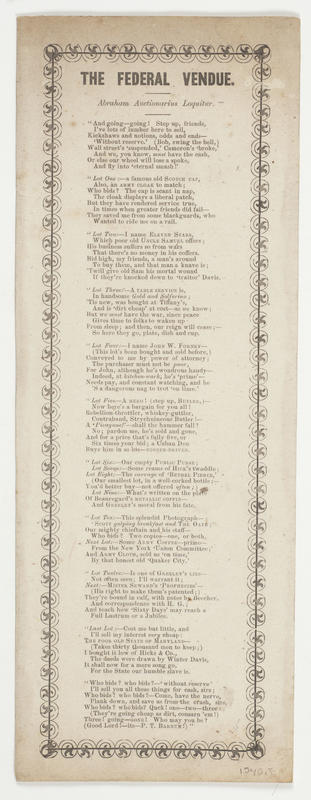 THE FEDERAL VENDUE.
Abraham Auctionarius Loquitur.
"And going—going! Step up, friends,
I've lots of lumber here to sell,
Kickshaws and notions, odds and ends—
'Without reserve.' (Bob, swing the bell,)
Wall street's 'suspended,' Cameron's 'broke,'
And we, you know, must have the cash,
Or else our wheel will lose a spoke,
And fly into 'eternal smash!'
"Lot One:—a famous old SCOTCH CAP,
Also, an ARMY CLOAK to match;
Who bids? The cap is scant in nap,
The cloak displays a liberal patch,
But they have rendered service true,
In times when greater friends did fail—
They saved me from some blackguards, who
Wanted to ride me on a rail.
"Lot Two:—I name ELEVEN STARS,
Which poor old UNCLE SAMUEL offers;
His business suffers so from wars
That there's no money in his coffers.
Bid high, my friends, a man's around
To buy them, and that man a knave is;
'Twill give old Sam his mortal wound
If they're knocked down to 'traitor' Davis.
"Lot Three:—A TABLE SERVICE is,
In handsome Gold and Solferino;
'Tis new, was bought at Tiffany's,
And is 'dirt cheap' at cost—as we know;
But we must have the war, since peace
Gives time to folks to waken up
From sleep; and then, our reign will cease;—
So here they go, plate, dish and cup.
"Lot Four:—I name JOHN W. FORNEY—
(This lot's been bought and sold before,)
Conveyed to me by power of attorney;
The purchaser must not be poor,
For John, although he's wondrous handy—
Indeed, at kitchen-work, he's 'prime'—
Needs pay, and constant watching, and he
'S a dangerous nag to trot 'on time.'
"Lot Five—A HERO! (step up, BUTLER,)—
Now here's a bargain for you all!
Rebellion-throttler, whiskey-guttler,
Contraband, Strychnineous Butler!—
A 'Picayune!'—shall the hammer fall?
No; pardon me, he's sold and gone,
And for a price that's fully five, or
Six times your bid; a Cuban Don
Buys him in as his—
"Lot Six:—Our empty PUBLIC PURSE;
Lot Seven:—Some reams of HICK's twaddle;
Lot Eight:—The courage of 'BETHEL PIERCE,'
(Our smallest lot, in a well-corked bottle;—
You'd better buy—not offered often;)
Lot Nine:—What's written on the plate
Of Beauregard's METALLIC COFFIN—
And GREELEY's moral from his fate.
"Lot Ten:—This splendid Photograph—
'SCOTT gulping breakfast and THE OATH;'
Our mighty chieftain and his staff—
Who bids? Two copies—one, or both,
Next Lot:—Some ARMY COFFEE—prime—
From the New York 'Union Committee;'
And ARMY CLOTH, sold us 'on time,'
By that honest old 'Quaker City.'
"Lot Twelve:—Is one of GREELEY's LIES—
Not often seen; I'll warrant it;
Next:—MISTER SEWARD's 'PROPHECIES'—
(His right to make them's patented;)
They're bound in calf, with notes by Beecher,
And correspondence with H. G.;
And teach how 'Sixty Days' may reach a
Full Lustrum or a Jubilee.
"Last Lot;—Cost me but little, and
I'll sell my interest very cheap:
THE POOR OLD STATE OF MARYLAND—
(Takes thirty thousand men to keep;)
I bought it low of Hicks & Co.,
The deeds were drawn by Winter Davis,
It shall now for a mere song go,
For the State our humble slave is.
"Who bids? who bids?—'without reserve'
I'll sell you all these things for cash, sirs;
Who bids? who bids?—Come, have the nerve,
Plank down, and save us from the crash, sirs,
Who bids? who bids? Quick! one—two—three;
(They're going cheap as dirt, consarn 'em!)
Three! going—GONE! Who may you be?
(Good Lord!—its—P. T. BARNUM!)"